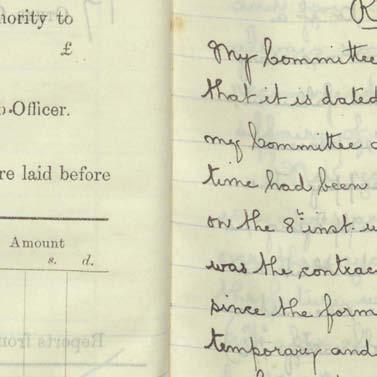 hority to
£
Officer.
re laid before
Amount
s. d.
My Committee
that it is dated
my Committee
time had been
on the 8th inst.
was the contrac
since the form
temporary and
Reports from